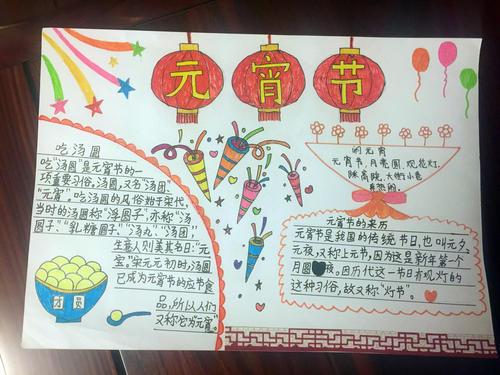 元宵节
吃汤圆
吃“汤圆”是元宵节的一
项重要习俗,汤圆,又名“汤团”、
“元宵”。吃汤圆的风俗始于宋代,
当时的汤圆称“浮圆子”,亦称“汤
圆子”、“乳糖圆子”、“汤丸”、“汤团”,
生意人则美其名曰:“元
宝”。宋元元初时,汤圆
已成为元宵节的应节食
品,所以人们
又称它为“元宵”。
汤员
的元宵
元宵节,月亮圆,观花灯,
大街小巷
元宵节的来历
元宵节是我国的传统节日,也叫元夕、
元夜,又称上元节,因为这是新年第一个
月圆夜,因历代这一节日有观灯的
这种习俗,故又称“灯节”。